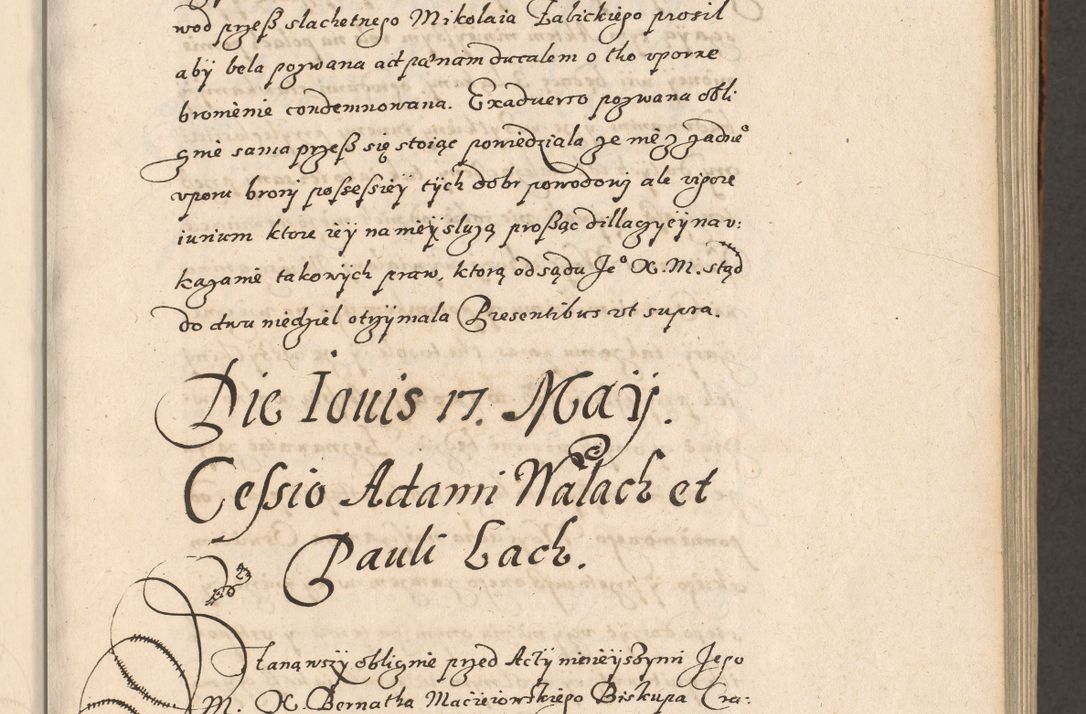 wod przeß slachetnego Mikolaia Zabickiego prosil
aby bela pozwana ad pa̅nam duealem o tho vporne
bronienie condemnowana. Exaduerso pozwana obli
gnie sama przeß się stoiąc powiedziala ze nie z zadne°
vporu broni possessiey tych dobr powodowi ale vigore
iurium ktore iey na niey slużą proßąc dillaczyey na v:
kazanie takowych praw, ktorą od sądu Je° X. M. stąd
do dwu niedziel otrzymala Presentibus vt supra.
Die Iouis 17. Maÿ.
Cessio Adami Walach et
Pauli Lach.
Stanąwszy oblicznie przed Acty ninieyszymi Jego
M. X. Bernatha Macieiowskiego Biskupa Cra: